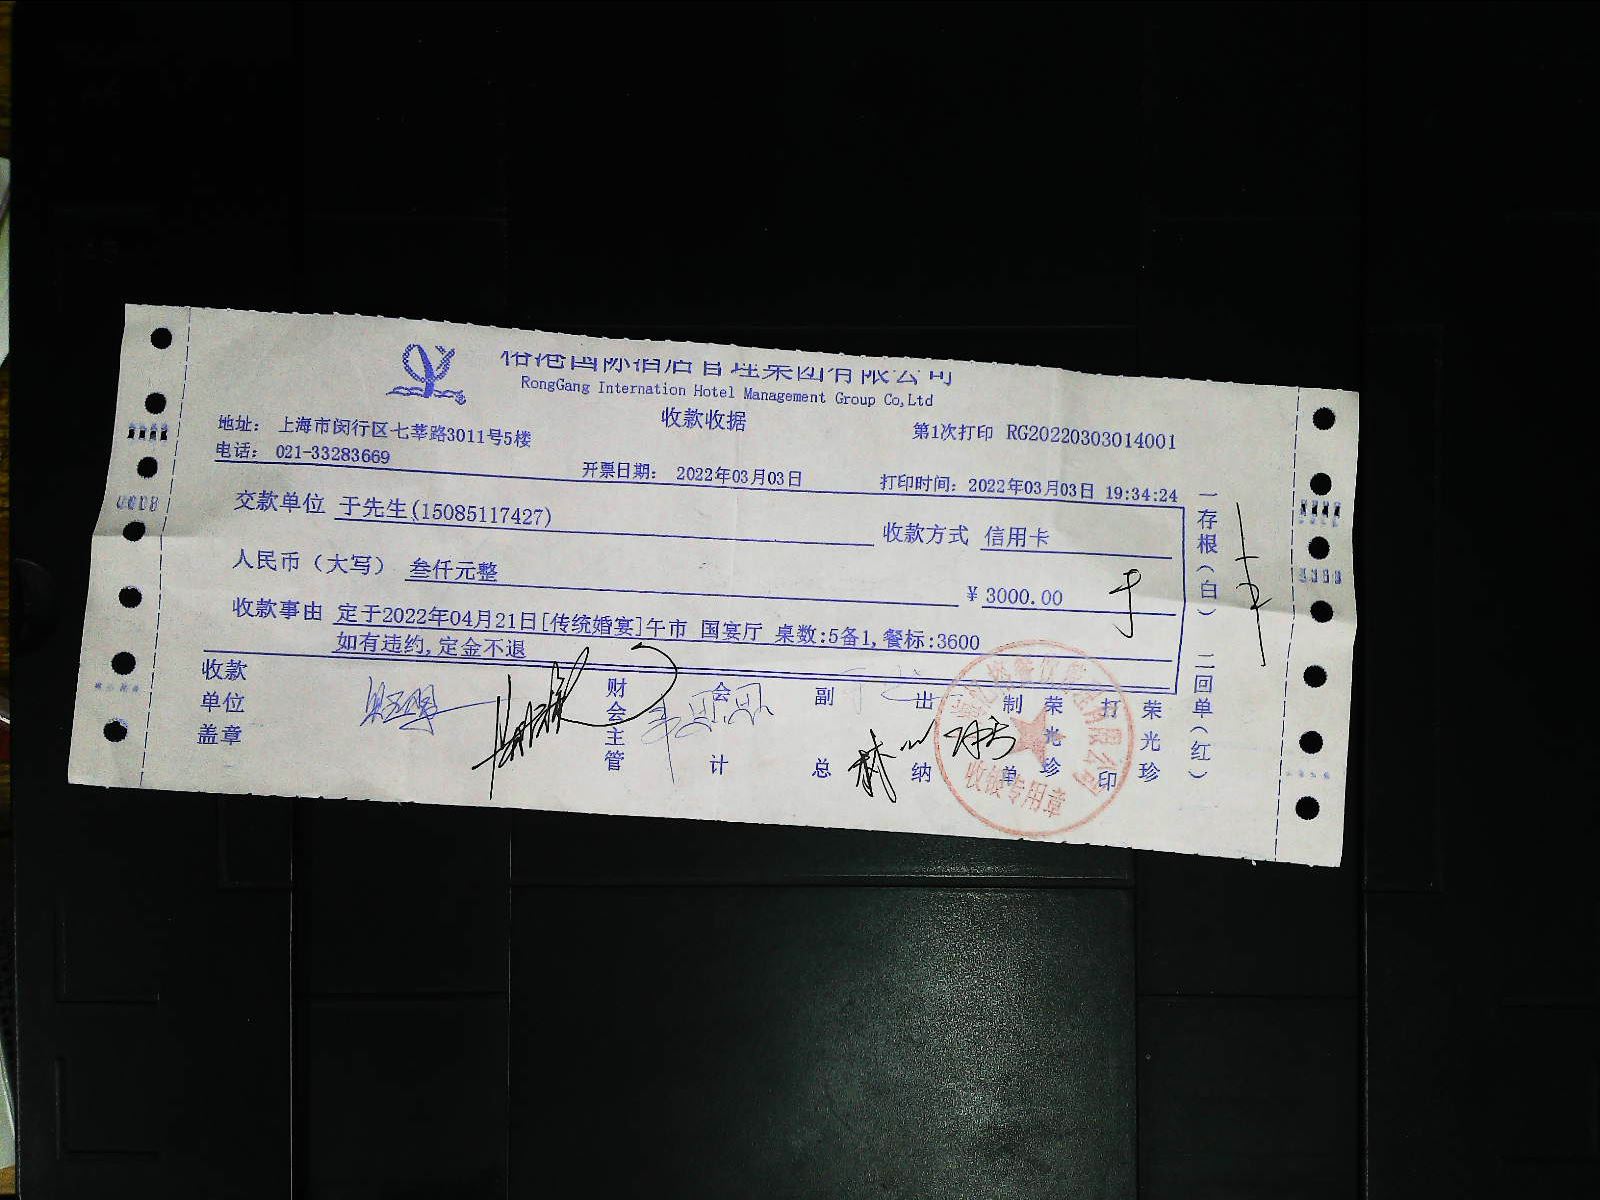 国际酒店管理集团有限公司
RongGang Internation Hotel Management Group Co,Ltd
收款收据
地址: 上海市闵行区七莘路3011号5楼
第1次打印 RG20220303014001
电话: 021-33283669
开票日期: 2022年03月03日
打印时间: 2022年03月03日 19:34:24
交款单位 于先生(15085117427)
收款方式 信用卡
人民币（大写） 叁仟元整
¥3000.00
收款事由 定于2022年04月21日[传统婚宴]午市 国宴厅 桌数:5备1,餐标:3600
如有违约,定金不退
收款单位盖章
财会主管
会计
副总
出纳
制单
荣光珍
打印
荣光珍
一存根（白）
二回单（红）
有限公司
收银专用章